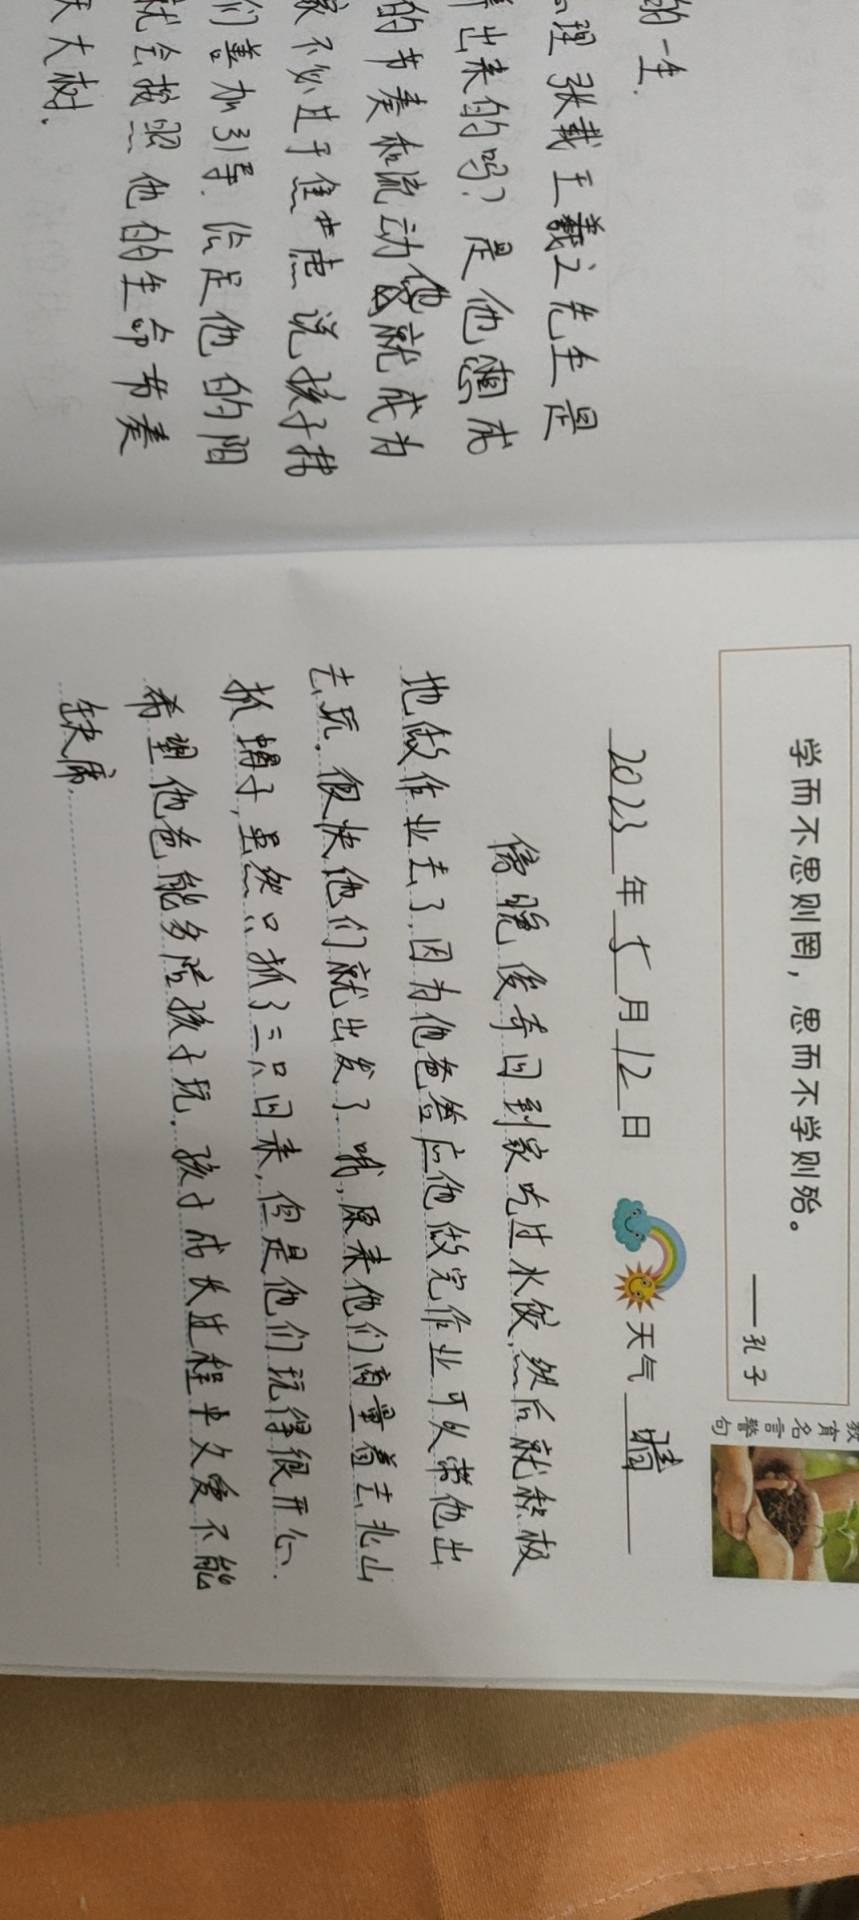 的一生.
心理张载王羲之先生是
弹出来的吗?是他想成
的节奏和流动他就成为
家不必过于焦虑说孩子拔
们善加引导.给足他的阳
就会按照他的生命节奏
天大树.
学而不思则罔，思而不学则殆。
——孔子
教育名言警句
2023年5月12日 天气 晴
傍晚俊希回到家吃过水饺,然后就积极
地做作业去了,因为他爸答应他做完作业可以带他出
去玩.很快他们就出发了.哦,原来他们商量着去北山
抓蝎子,虽然只抓了三只回来,但是他们玩得很开心.
希望他爸能多陪孩子玩.孩子成长过程中父爱不能
缺席.